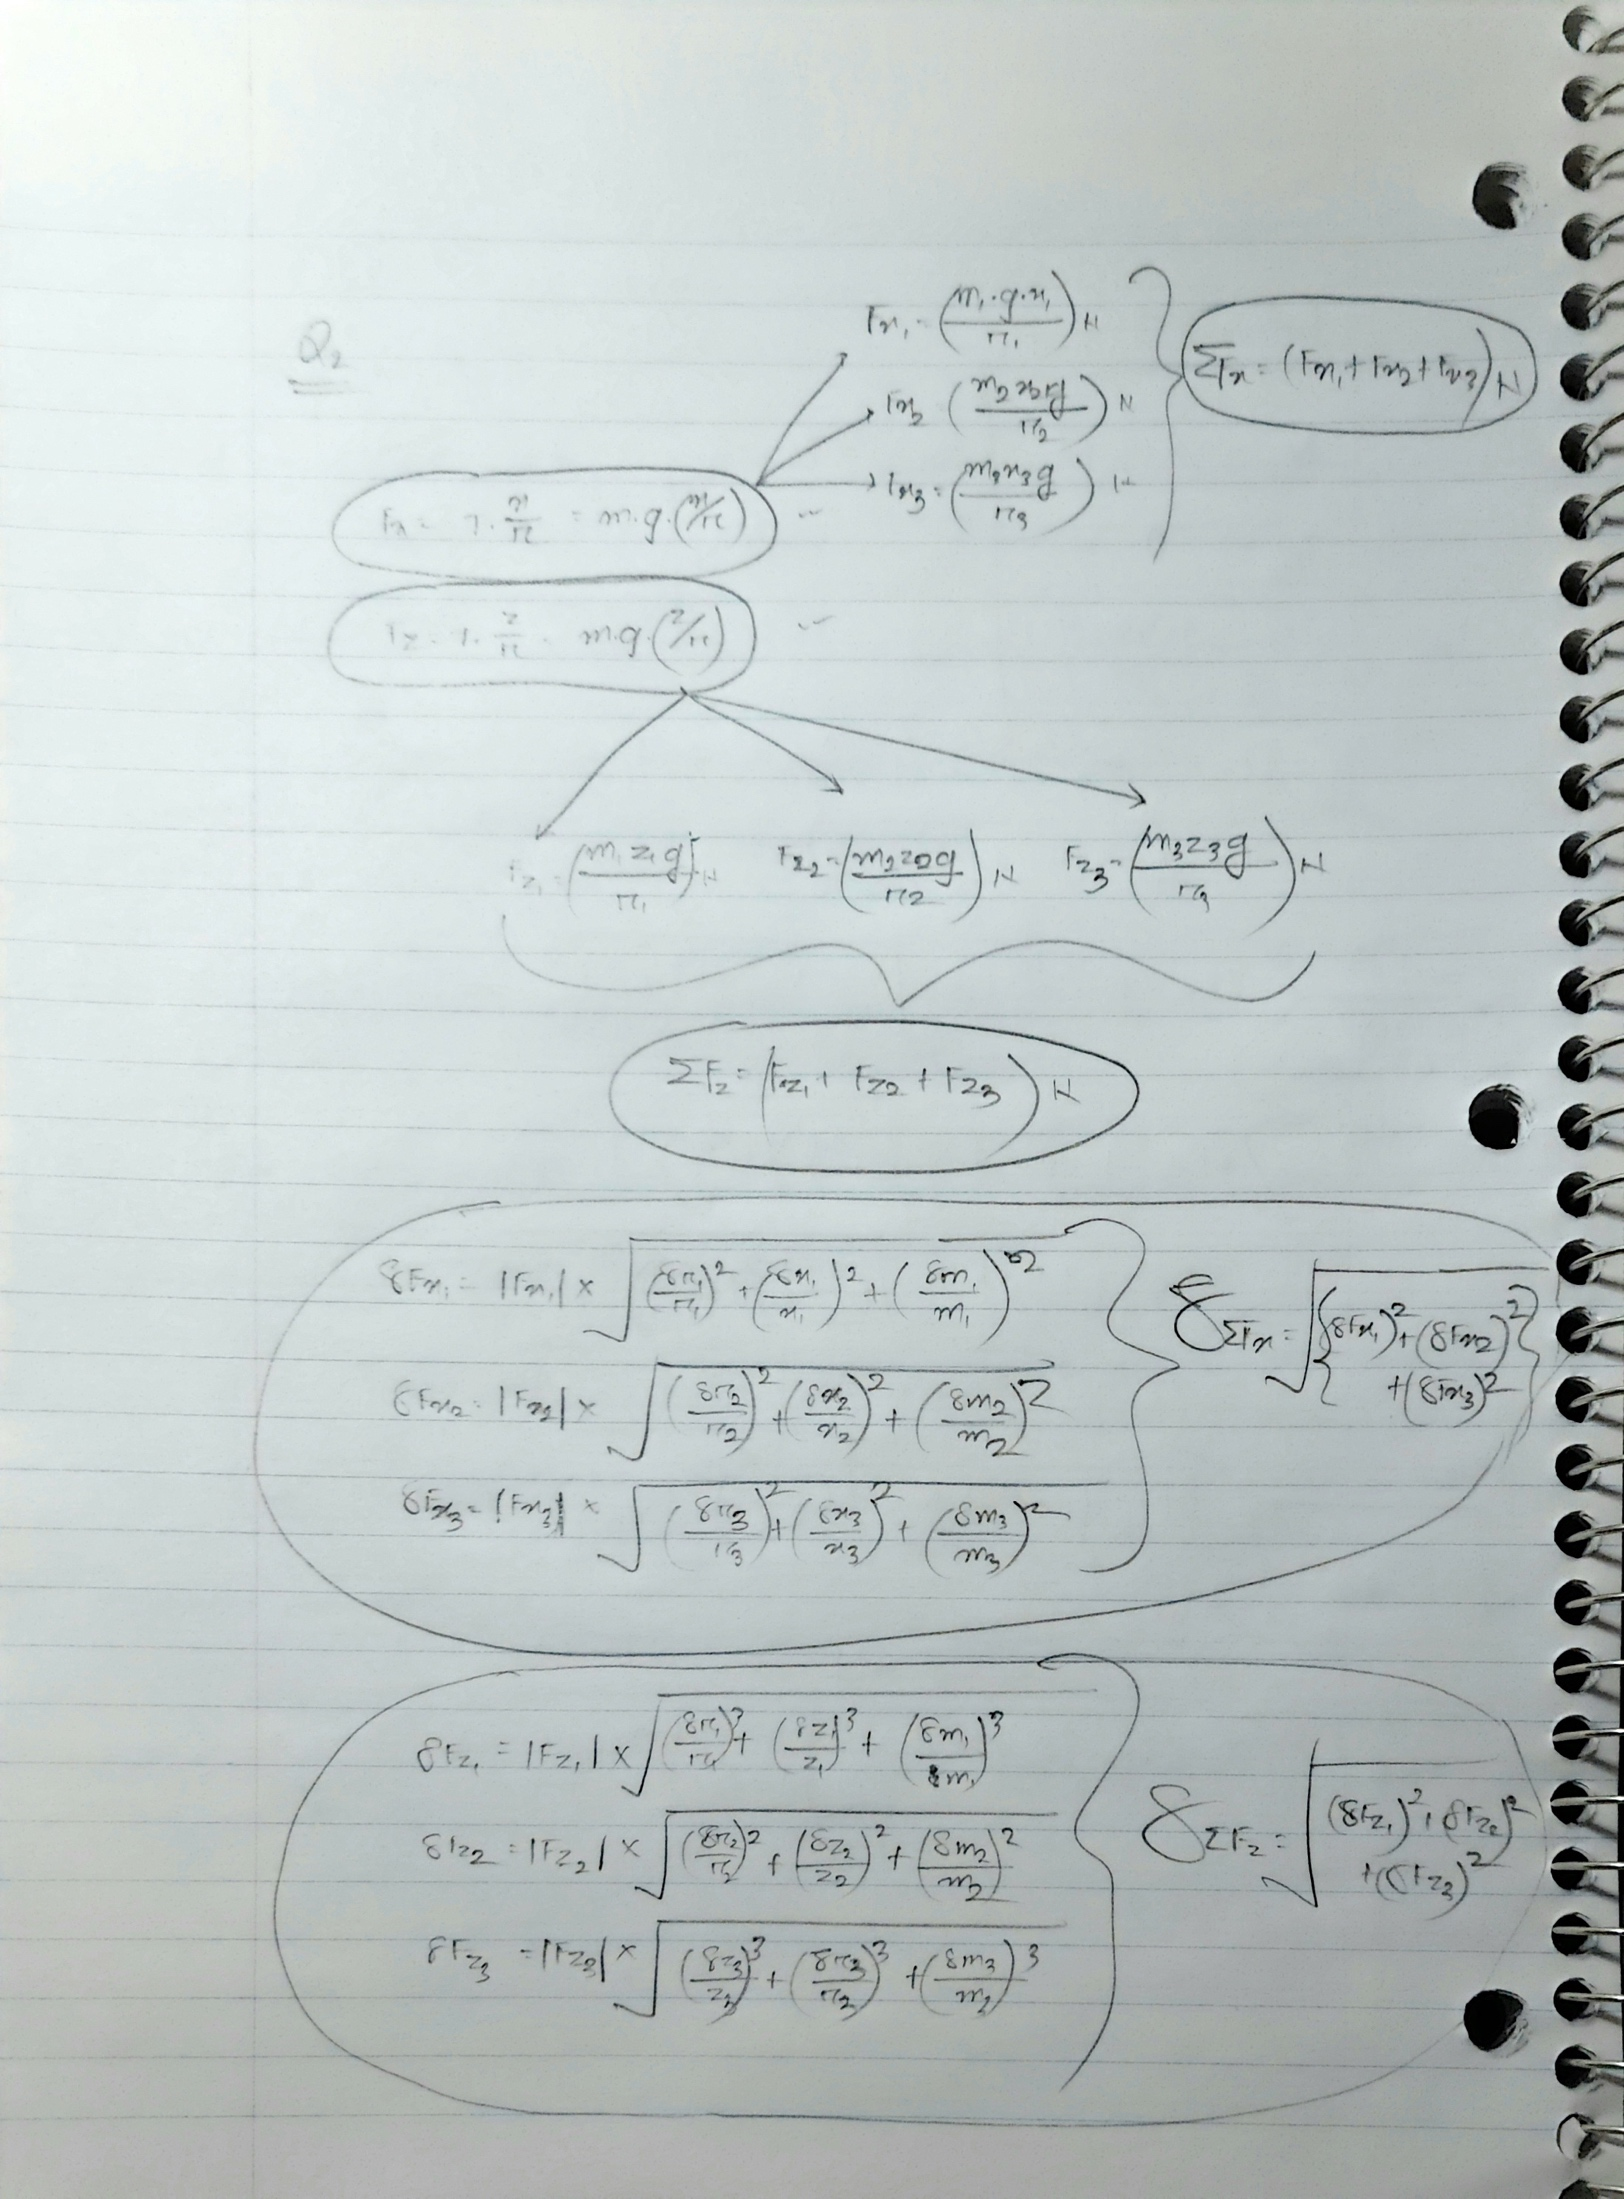 Q2
Fx = T · x/r = m·g·(x/r)
Fx1 = (m1·g·x1/r1) N
Fx2 (m2x2g/r2) N
Fx3 = (m3x3g/r3) N
ΣFx = (Fx1 + Fx2 + Fx3) N
Fz = T · z/r = m·g·(z/r)
Fz1 = (m1z1g/r1) N Fz2 = (m2z2g/r2) N Fz3 = (m3z3g/r3) N
ΣFz = (Fz1 + Fz2 + Fz3) N
δFx1 = |Fx1| × √((δr1/r1)² + (δx1/x1)² + (δm1/m1)²)
δFx2 = |Fx2| × √((δr2/r2)² + (δx2/x2)² + (δm2/m2)²)
δFx3 = |Fx3| × √((δr3/r3)² + (δx3/x3)² + (δm3/m3)²)
δΣFx = √{(δFx1)² + (δFx2)²
+ (δFx3)²}
δFz1 = |Fz1| × √((δr1/r1)³ + (δz1/z1)³ + (δm1/m1)³)
δFz2 = |Fz2| × √((δr2/r2)² + (δz2/z2)² + (δm2/m2)²)
δFz3 = |Fz3| × √((δz3/z3)³ + (δr3/r3)³ + (δm3/m3)³)
δΣFz = √((δFz1)² + (δFz2)²
+ (δFz3)²)